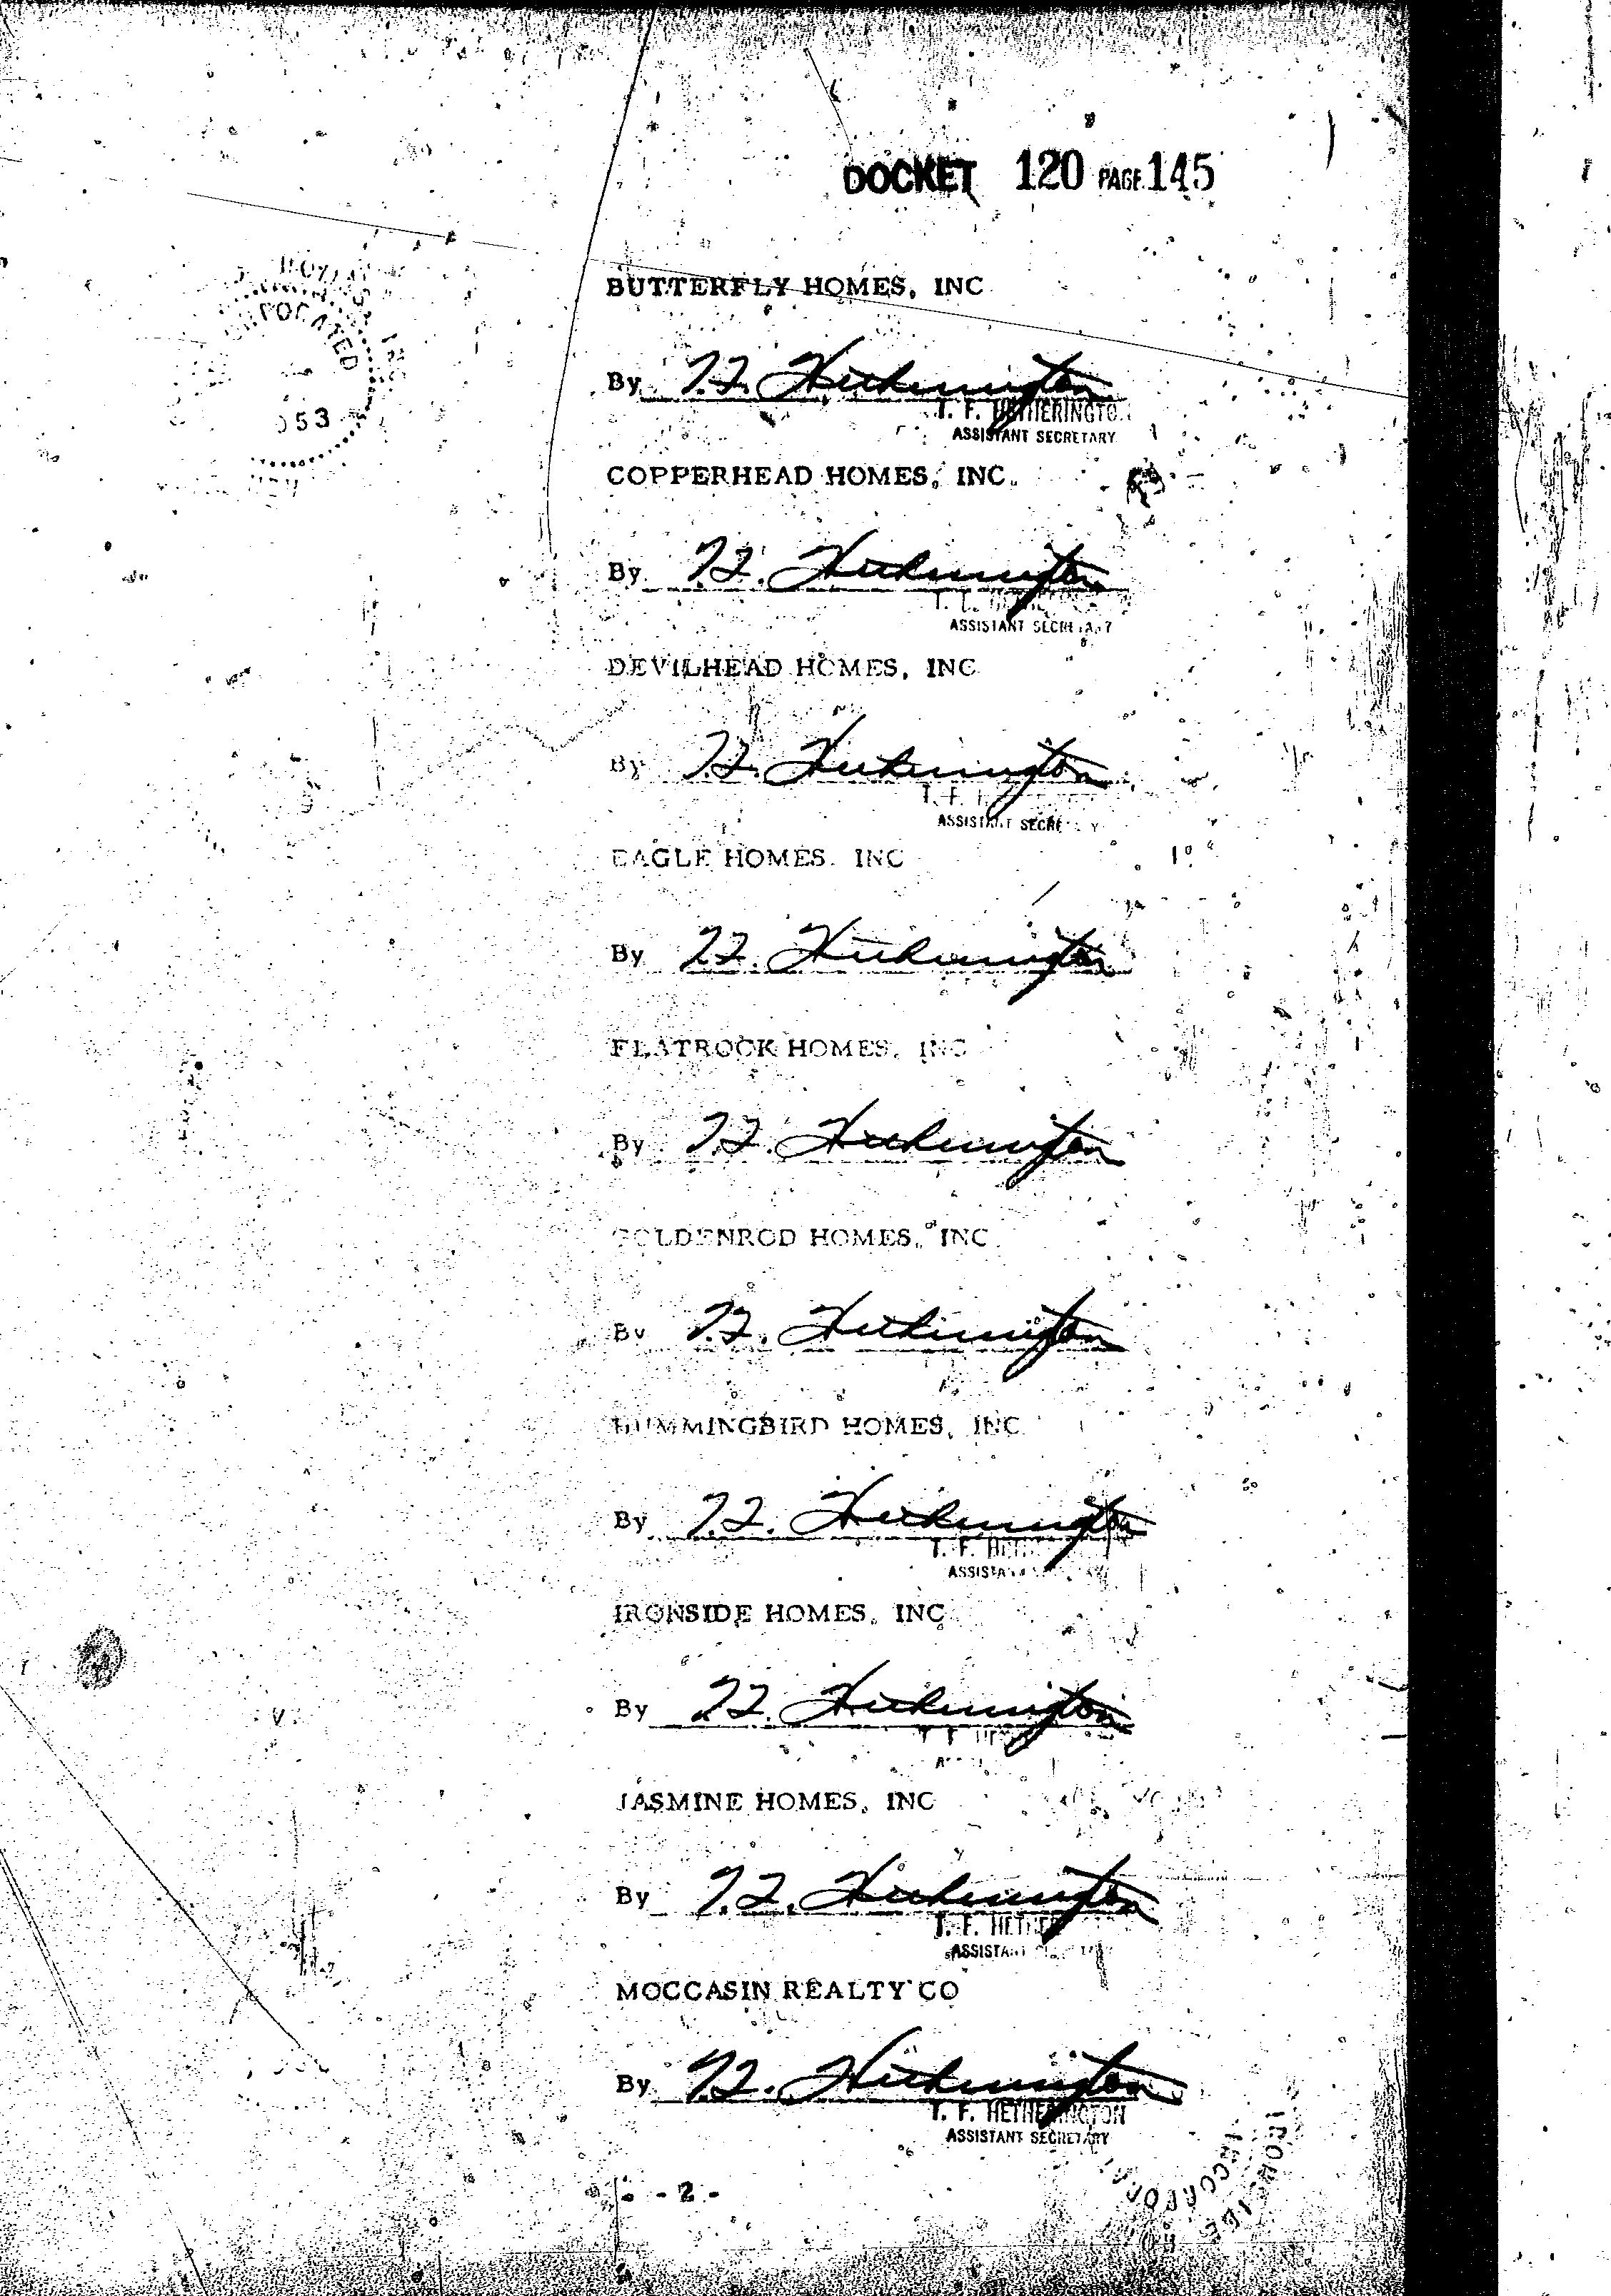 DOCKET 120 PAGE 145
BUTTERFLY HOMES, INC
By T.F. Hetherington
T. F. HETHERINGTON
ASSISTANT SECRETARY
COPPERHEAD HOMES, INC.
By T.F. Hetherington
ASSISTANT SECRETARY
DEVILHEAD HOMES, INC
By T.F. Hetherington
T. F.
ASSISTANT SECRETARY
EAGLE HOMES. INC
By T.F. Hetherington
FLATROCK HOMES, INC
By T.F. Hetherington
GOLDENROD HOMES, INC
By T.F. Hetherington
HUMMINGBIRD HOMES, INC
By T.F. Hetherington
T. F.
IRONSIDE HOMES, INC
By T.F. Hetherington
JASMINE HOMES, INC
By T.F. Hetherington
T. F. HETHERINGTON
ASSISTANT
MOCCASIN REALTY CO
By T.F. Hetherington
T. F. HETHERINGTON
ASSISTANT SECRETARY
- 2 -